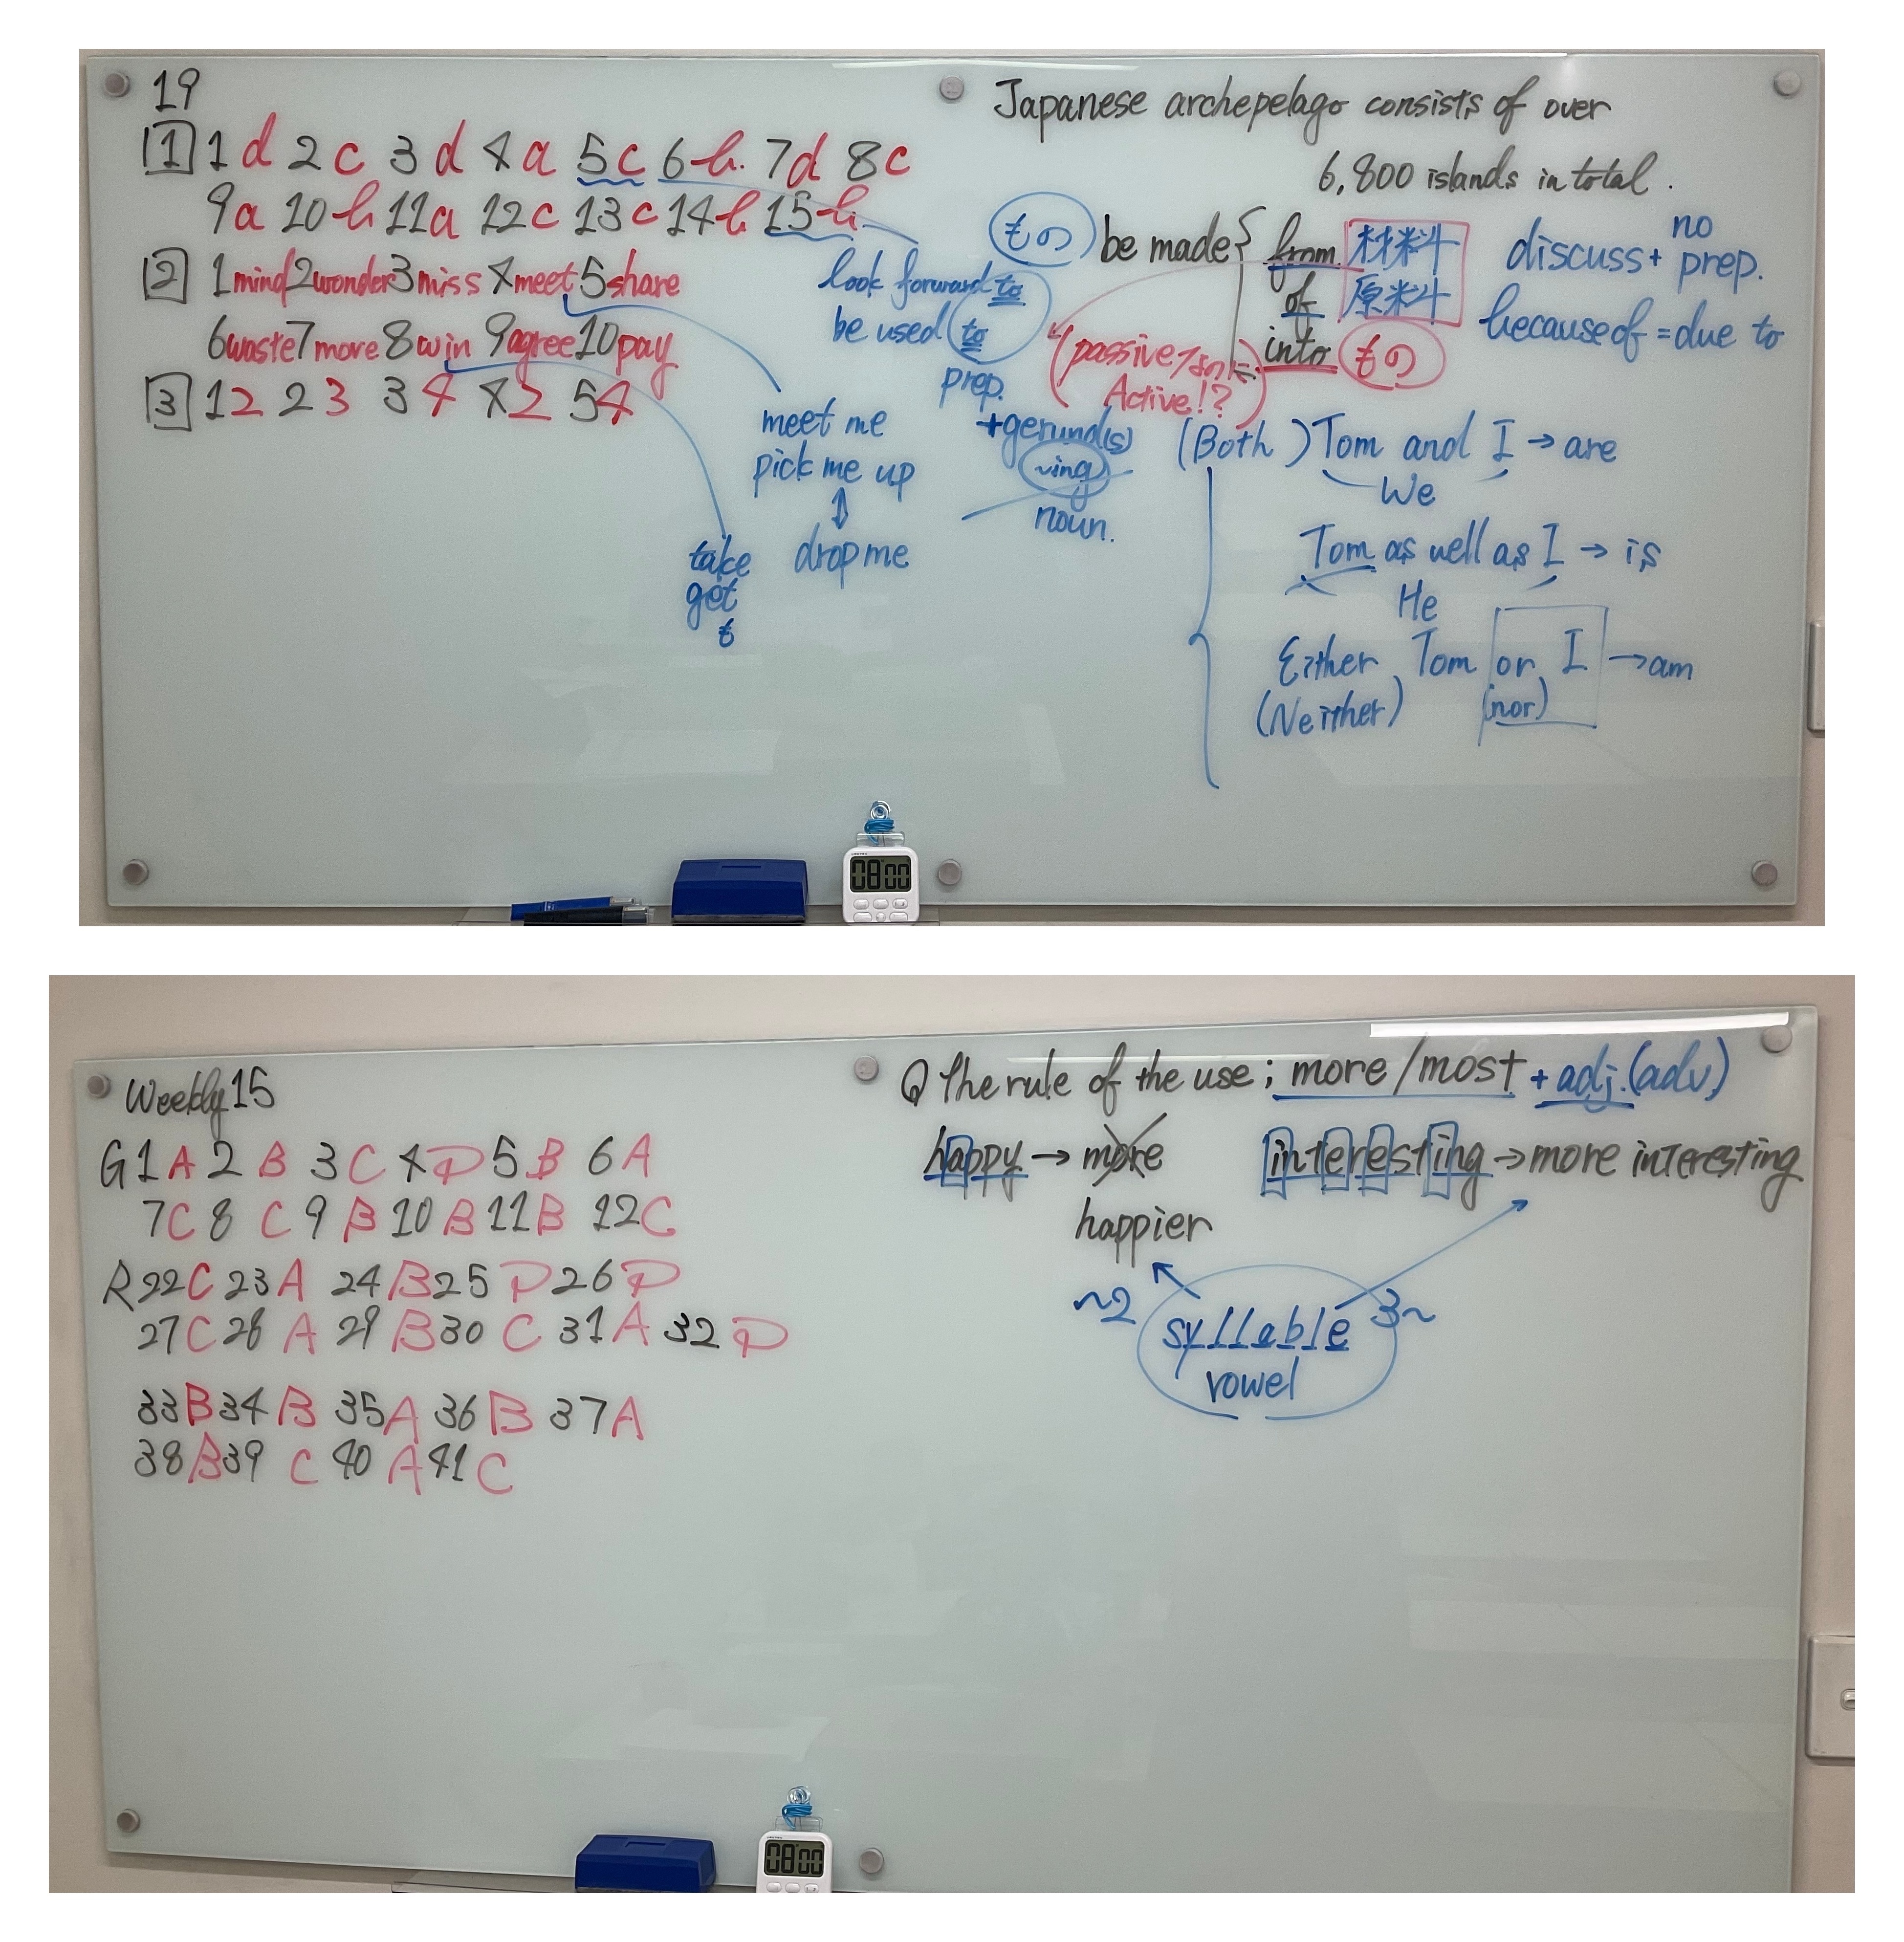 19
[1] 1 d 2 c 3 d 4 a 5 c 6 b. 7 d 8 c
9 a 10 b 11 a 12 c 13 c 14 b 15 b.
[2] 1 mind 2 wonder 3 miss 4 meet 5 share
6 waste 7 more 8 win 9 agree 10 pay
[3] 1 2 2 3 3 4 4 2 5 4
look forward to
be used to
prep.
+gerund(s)
~ing
noun.
meet me
pick me up
↕
drop me
take
get
Japanese archepelago consists of over
6,800 islands in total.
もの be made { from 材料
of 原料
into もの
(passive
Active!?)
discuss + no prep.
because of = due to
(Both) Tom and I → are
We
Tom as well as I → is
He
Either Tom or I → am
(Neither) (nor)
08:00
Weekly 15
G 1 A 2 B 3 C 4 D 5 B 6 A
7 C 8 C 9 B 10 B 11 B 12 C
R 22 C 23 A 24 B 25 D 26 D
27 C 28 A 29 B 30 C 31 A 32 D
33 B 34 B 35 A 36 B 37 A
38 B 39 C 40 A 41 C
Q The rule of the use; more/most + adj.(adv)
happy → more interesting → more interesting
happier
~2 syllable 3~
vowel
08:00